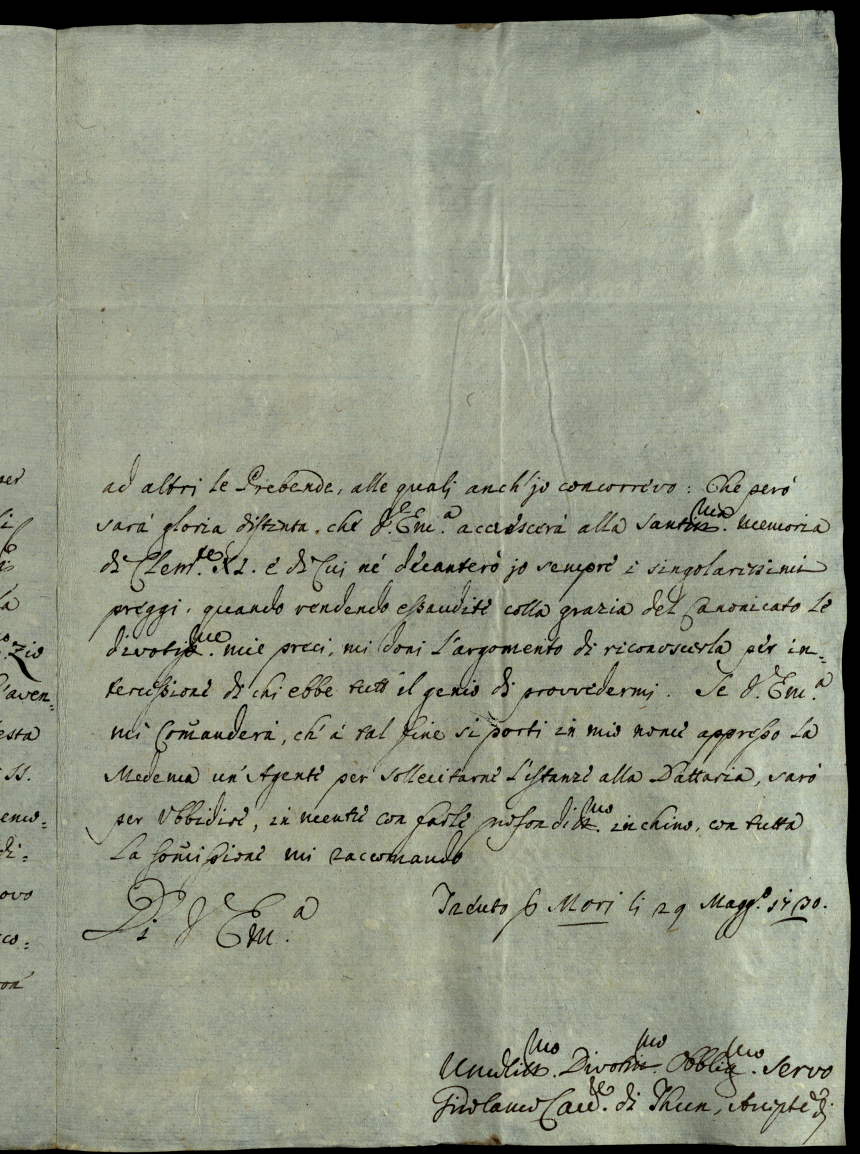 ad altri le Prebende, alle quali anch'jo concorrevo: Che però
sarà gloria distinta, che V. Em.a accrescerà alla santiss.ma memoria
di Clem.te XI. e di Cui né decanterò jo sempre i singolarissimi
preggi, quando rendendo essaudite colla grazia del Canonicato le
divotiss.me mie preci, mi doni l'argomento di riconoscerla per in=
tercessione di chi ebbe tutt'il genio di provvedermi. Se V. Em.a
mi Comanderà, ch'à tal fine si porti in mio nome appresso la
Medema un'Agente per sollecitarne l'istanze alla Dattaria, sarò
per Ubbidire, in mentre con farle profondiss.mo inchino, con tutta
la somissione mi raccomando
Di V. Em.a
Trento p Mori li 29 Magg.o 1730.
Umiliss.mo Divotiss.mo Obblig.mo Servo
Girolamo di Thun
per
la
Zio
aven=
esta
SS.
di=
ovo
co=